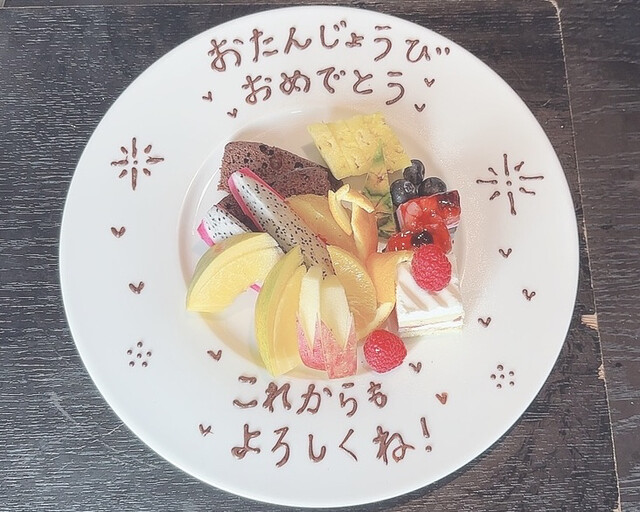 おたんじょうび
おめでとう
これからも
よろしくね!